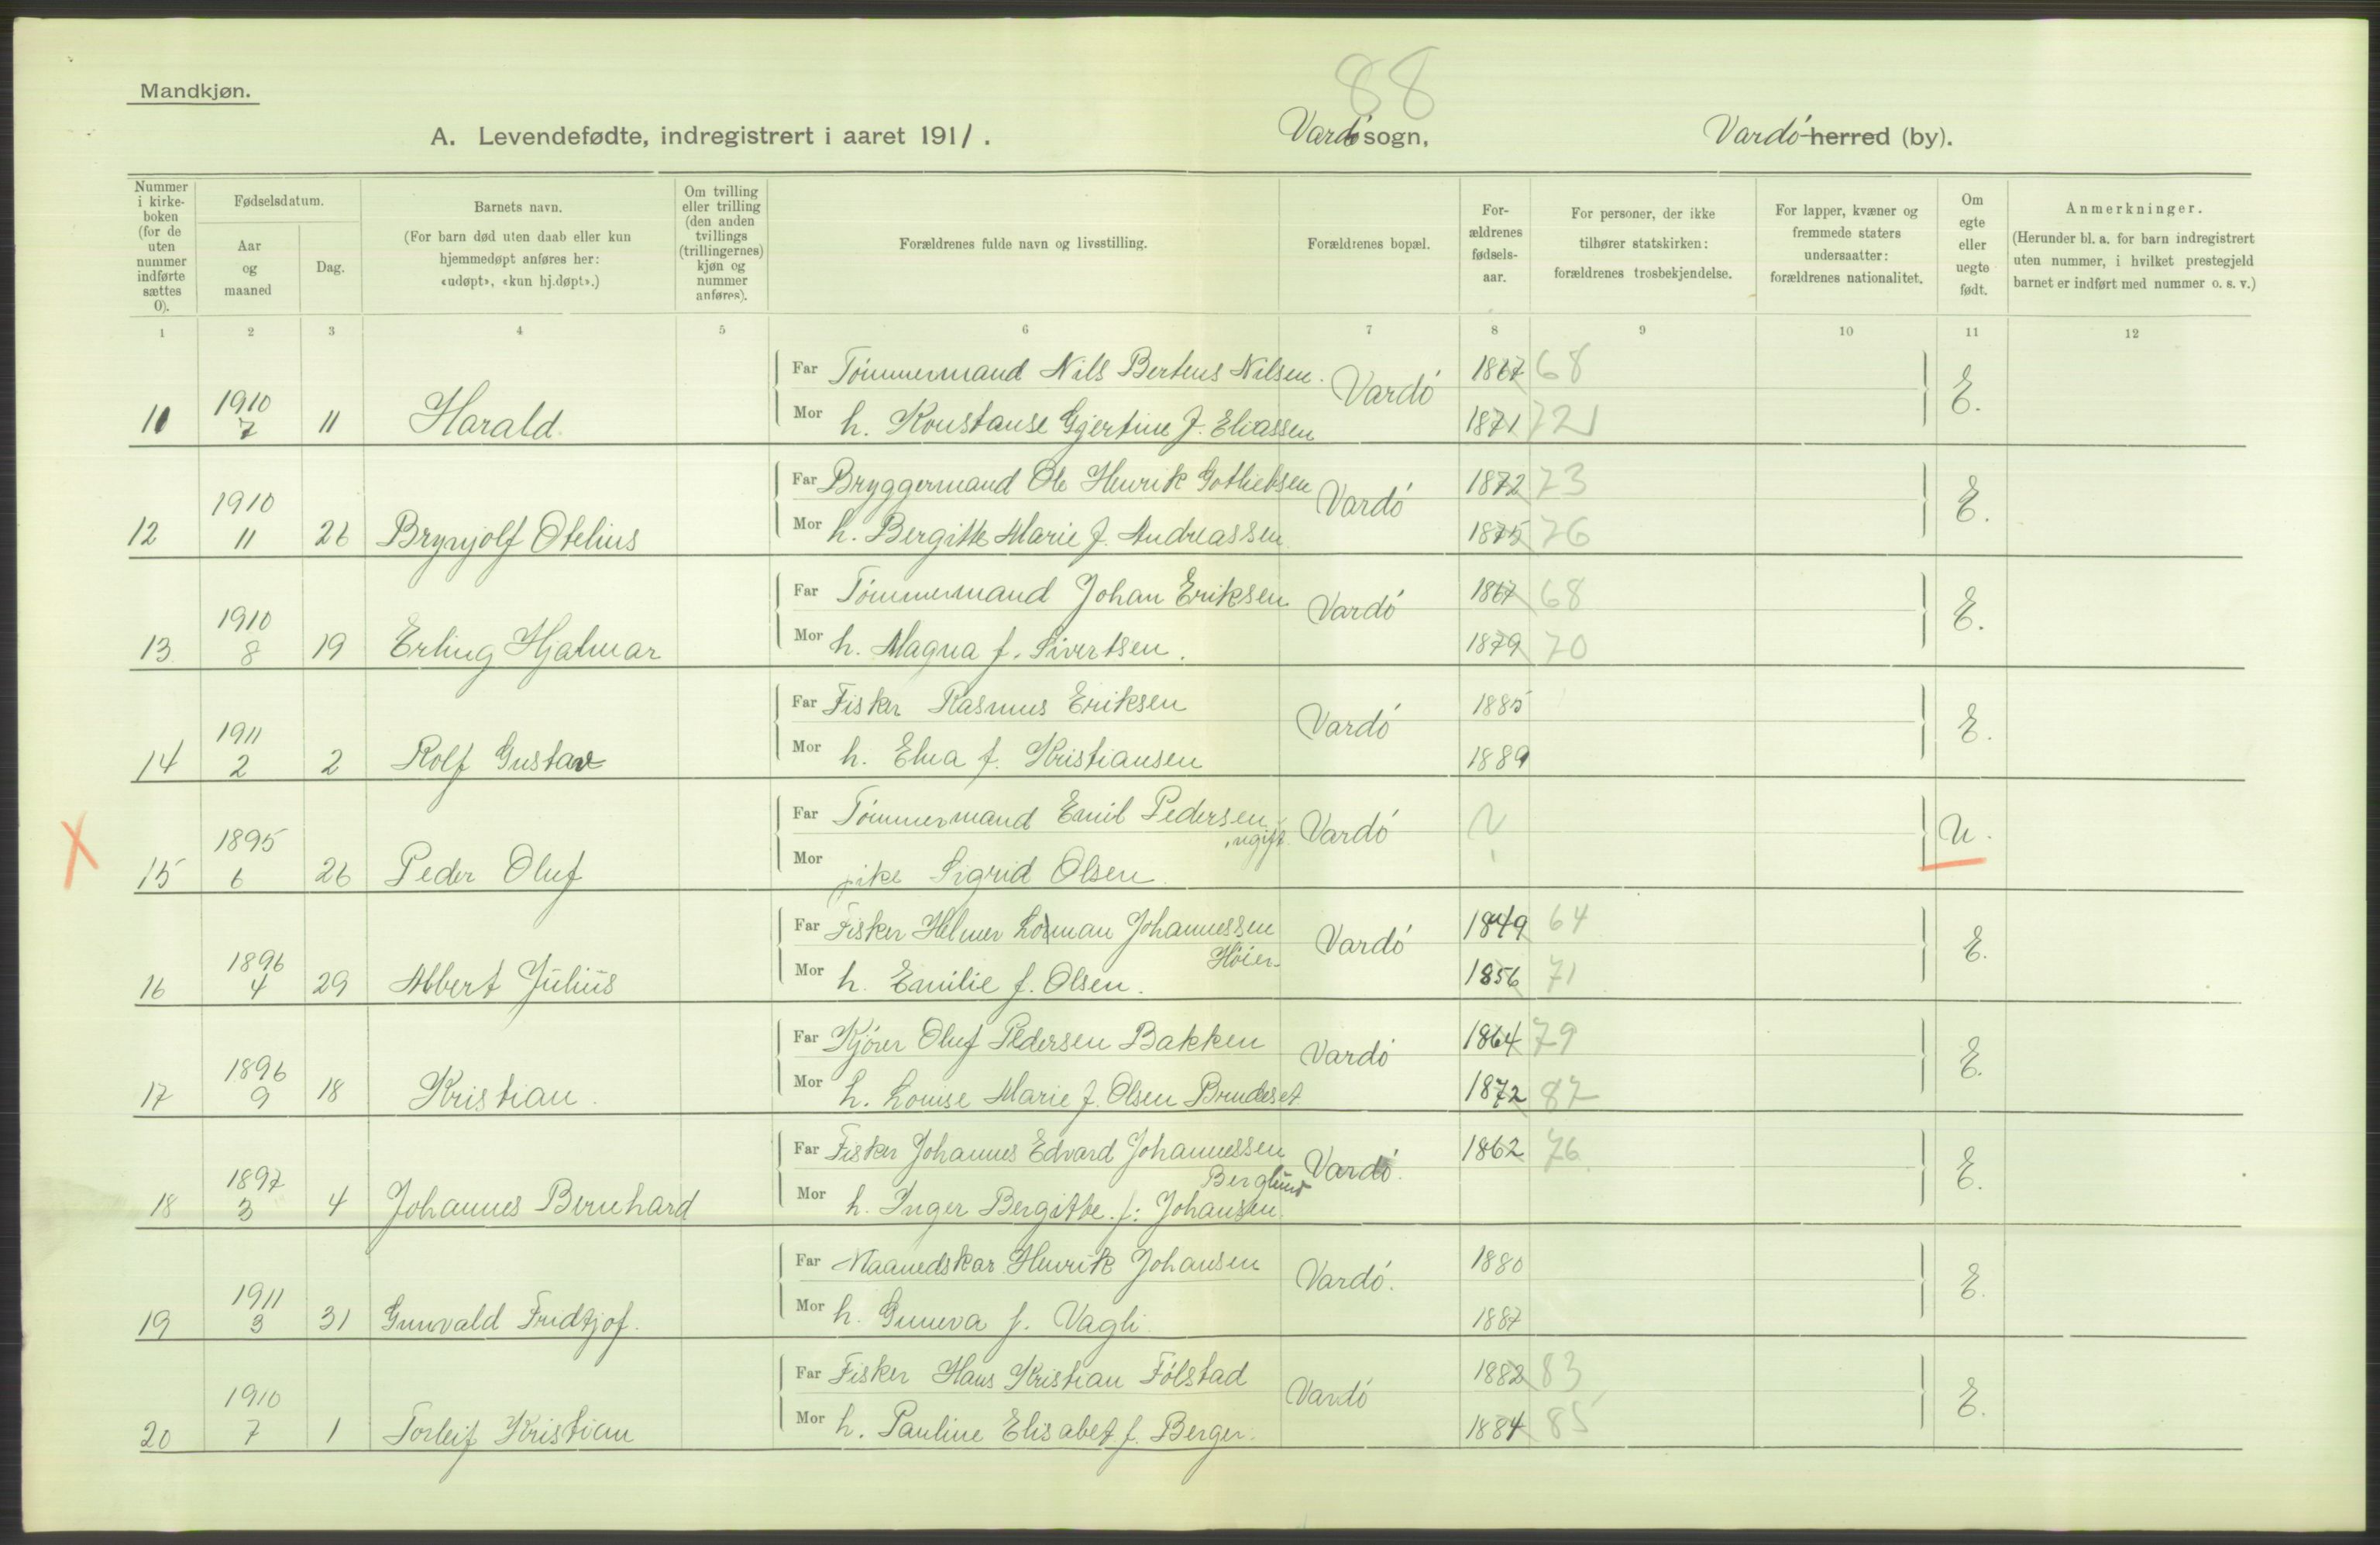 88
Mandkjøn.
A. Levendefødte, indregistrert i aaret 1911. Vardø sogn, Vardø herred (by).
Nummer i kirke-boken (for de uten nummer indførte sættes 0).
Fødselsdatum.
Aar og maaned
Dag.
Barnets navn.
(For barn død uten daab eller kun hjemmedøpt anføres her: «udøpt», «kun hj.døpt».)
Om tvilling eller trilling (den anden tvillings (trillingernes) kjøn og nummer anføres).
Forældrenes fulde navn og livsstilling.
Forældrenes bopæl.
For-ældrenes fødsels-aar.
For personer, der ikke tilhører statskirken: forældrenes trosbekjendelse.
For lapper, kvæner og fremmede staters undersaatter: forældrenes nationalitet.
Om egte eller uegte født.
Anmerkninger.
(Herunder bl. a. for barn indregistrert uten nummer, i hvilket prestegjeld barnet er indført med nummer o. s. v.)
1 2 3 4 5 6 7 8 9 10 11 12
Far Tømmermand Nils Berteus Nilsen. Vardø 1867 68
11 1910 7 11 Harald. Mor h. Konstanse Gjertine f. Eliassen 1871 72 E.
Far Bryggermand Ole Henrik Gotliebsen Vardø 1872 73
12 1910 11 26 Brynjolf Otelius Mor h. Bergitte Marie f. Andreassen 1875 76 E.
Far Tømmermand Johan Eriksen Vardø 1867 68
13 1910 8 19 Erling Hjalmar Mor h. Magna f. Sivertsen. 1879 70 E.
Far Fisker Rasmus Eriksen Vardø 1885
14 1911 2 2 Rolf Gustav Mor h. Elna f. Kristiansen 1889 E.
Far Tømmermand Emil Pedersen, ugift Vardø ?
X 15 1895 6 26 Peder Oluf Mor pike Sigrid Olsen. U.
Far Fisker Helmer Johannessen Høier Vardø 1849 64
16 1896 4 29 Albert Julius Mor h. Emilie f. Olsen. 1856 71 E.
Far Kjører Oluf Pedersen Bakken Vardø 1864 79
17 1896 9 18 Kristian. Mor h. Louise Marie f. Olsen Brudeset 1872 87 E.
Far Fisker Johannes Edvard Johannessen Berglund Vardø. 1862 76
18 1897 3 4 Johannes Bernhard Mor h. Inger Bergitte f: Johansen. E.
Far Maanedskar Henrik Johansen Vardø. 1880
19 1911 3 31 Gunvald Fridtjof. Mor h. Guneva f. Vagli. 1887 E.
Far Fisker Hans Kristian Følstad Vardø 1882 83
20 1910 7 1 Torleif Kristian Mor h. Pauline Elisabet f. Berger. 1884 85 E.